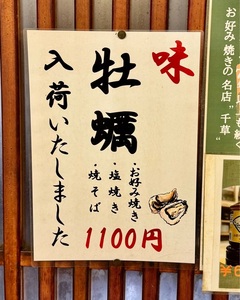 味
牡蠣
・お好み焼き
・塩焼き
・焼そば
1100円
入荷いたしました
お好み焼きの名店"千草"